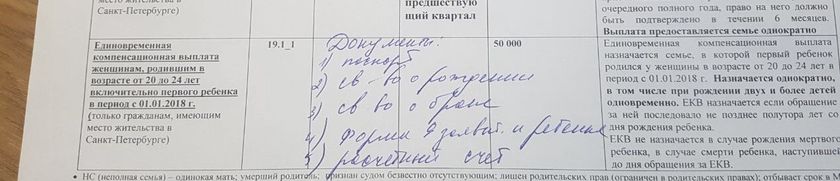 место жительства в
Санкт-Петербурге)
предшествую
щий квартал
очередного полного года, право на него должно
быть подтверждено в течении 6 месяцев.
Выплата предоставляется семье однократно
Единовременная
компенсационная выплата
женщинам, родившим в
возрасте от 20 до 24 лет
включительно первого ребенка
в период с 01.01.2018 г.
(только гражданам, имеющим
место жительства в
Санкт-Петербурге)
19.1_1
Документы:
1) паспорт
2) св-во о рождении
3) св-во о браке
4) Форма 9 заявит. и ребенка
5) расчетный счет
50 000
Единовременная компенсационная выплата
назначается семье, в которой первый ребенок
родился у женщины в возрасте от 20 до 24 лет в
период с 01.01.2018 г. Назначается однократно,
в том числе при рождении двух и более детей
одновременно. ЕКВ назначается если обращение
за ней последовало не позднее полутора лет со
дня рождения ребенка.
ЕКВ не назначается в случае рождения мертвого
ребенка, в случае смерти ребенка, наступившей
до дня обращения за ЕКВ.
• НС (неполная семья) – одинокая мать; умерший родитель; признан судом безвестно отсутствующим; лишен родительских прав (ограничен в родительских правах); отбывает срок в